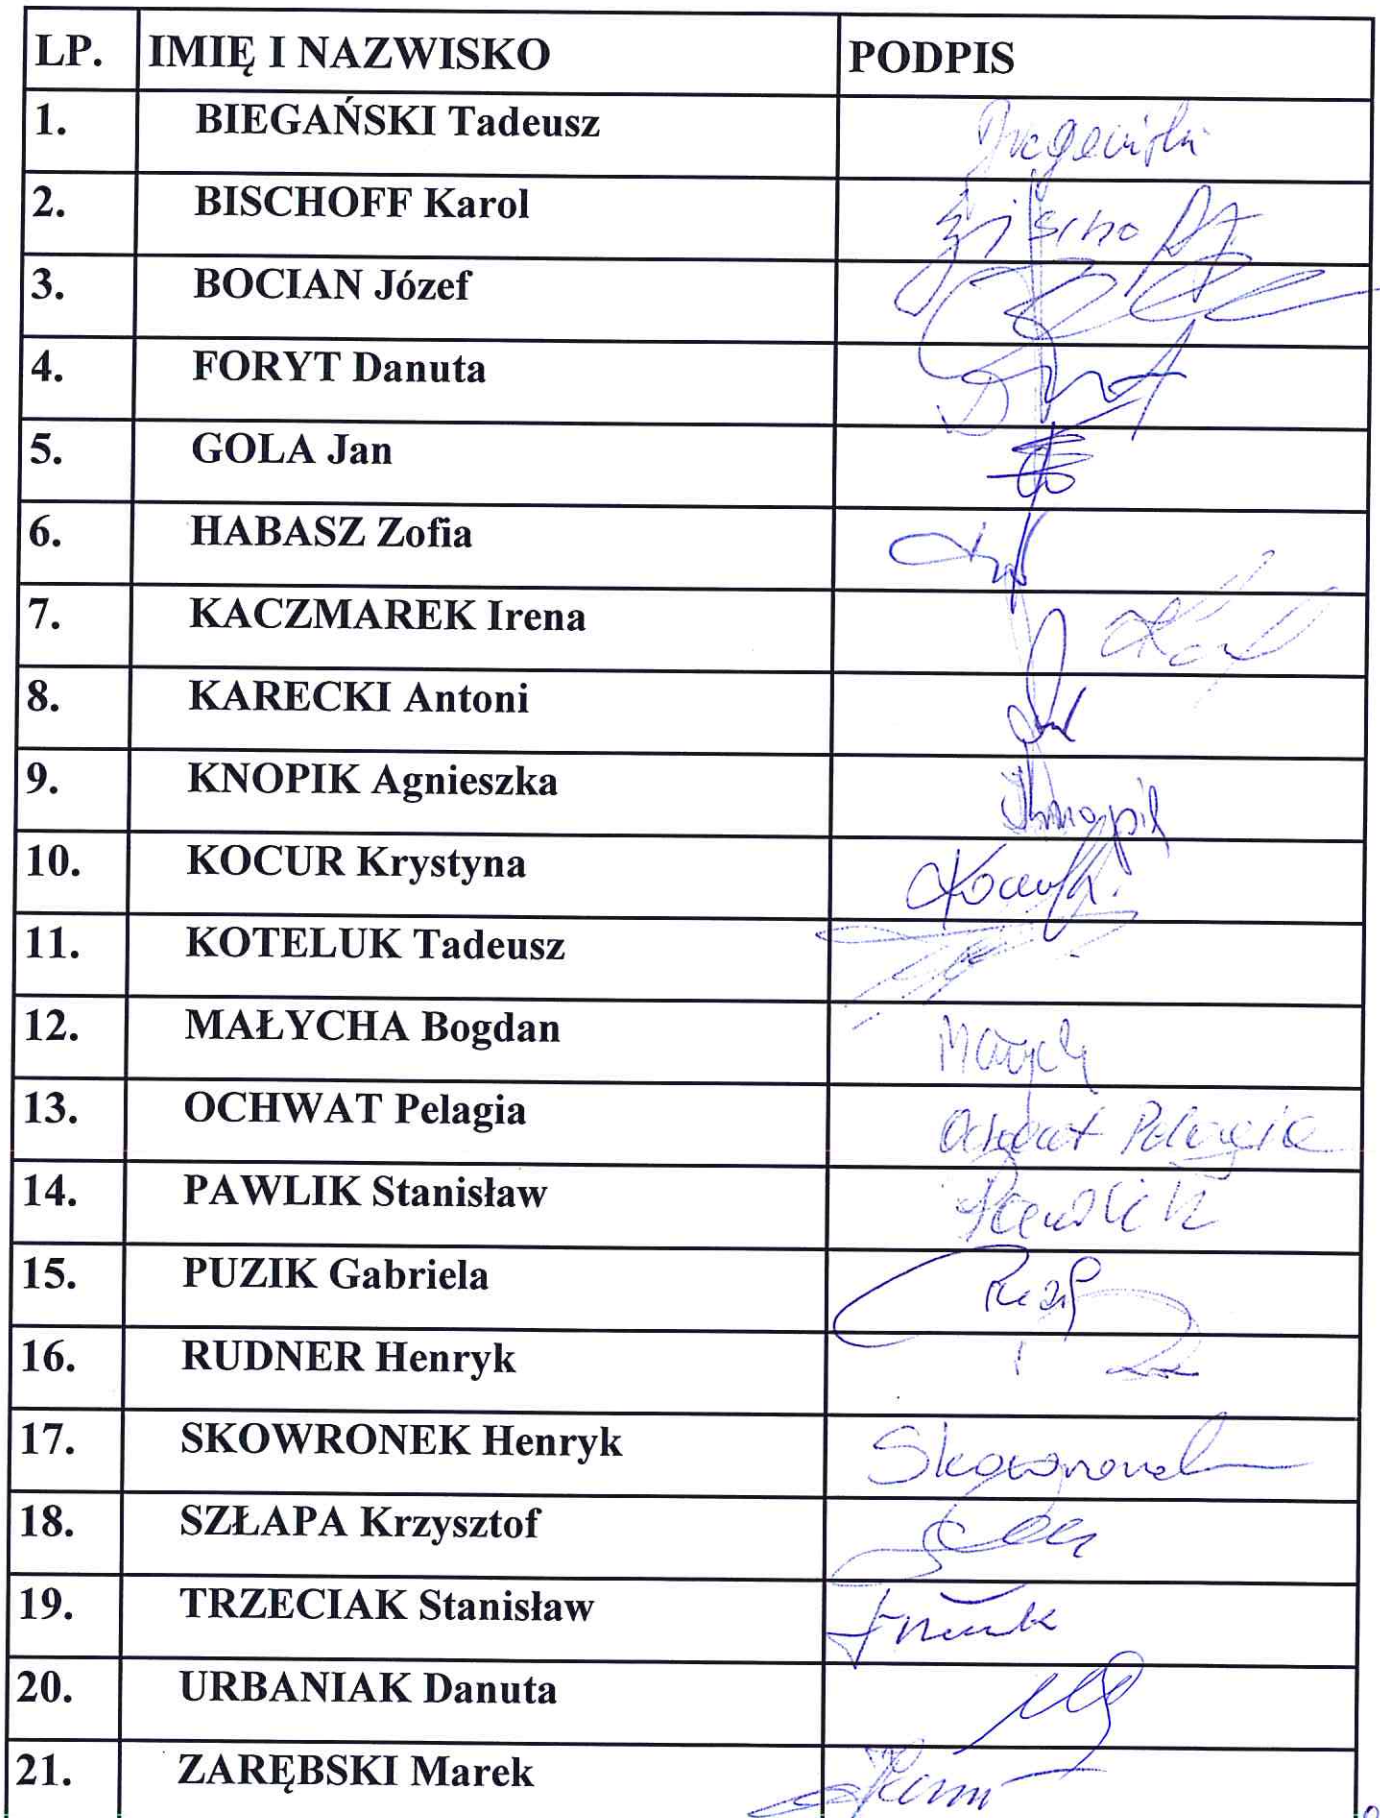 LP. IMIĘ I NAZWISKO PODPIS
1. BIEGAŃSKI Tadeusz
2. BISCHOFF Karol
3. BOCIAN Józef
4. FORYT Danuta
5. GOLA Jan
6. HABASZ Zofia
7. KACZMAREK Irena
8. KARECKI Antoni
9. KNOPIK Agnieszka Knopik
10. KOCUR Krystyna
11. KOTELUK Tadeusz
12. MAŁYCHA Bogdan
13. OCHWAT Pelagia Ochwat Pelagia
14. PAWLIK Stanisław Pawlik
15. PUZIK Gabriela
16. RUDNER Henryk
17. SKOWRONEK Henryk Skowronek
18. SZŁAPA Krzysztof
19. TRZECIAK Stanisław
20. URBANIAK Danuta
21. ZARĘBSKI Marek